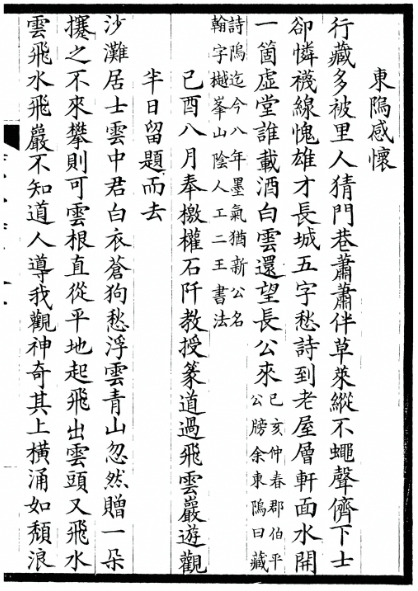 東隝感懷
行藏多被里人猜門巷蕭蕭伴草萊縱不蠅聲儕下士
卻憐襪線愧雄才長城五字愁詩到老屋層軒面水開
一箇虛堂誰載酒白雲還望長公來己亥仲春郡伯平
公牓余東隝曰藏
詩隝迄今八年墨氣猶新公名
翰字樾峯山陰人工二王書法
己酉八月奉檄權石阡教授篆道過飛雲巖遊觀
半日留題而去
沙灘居士雲中君白衣蒼狗愁浮雲青山忽然贈一朵
攓之不來攀則可雲根直從平地起飛出雲頭又飛水
雲飛水飛巖不知道人導我觀神奇其上橫涌如頹浪